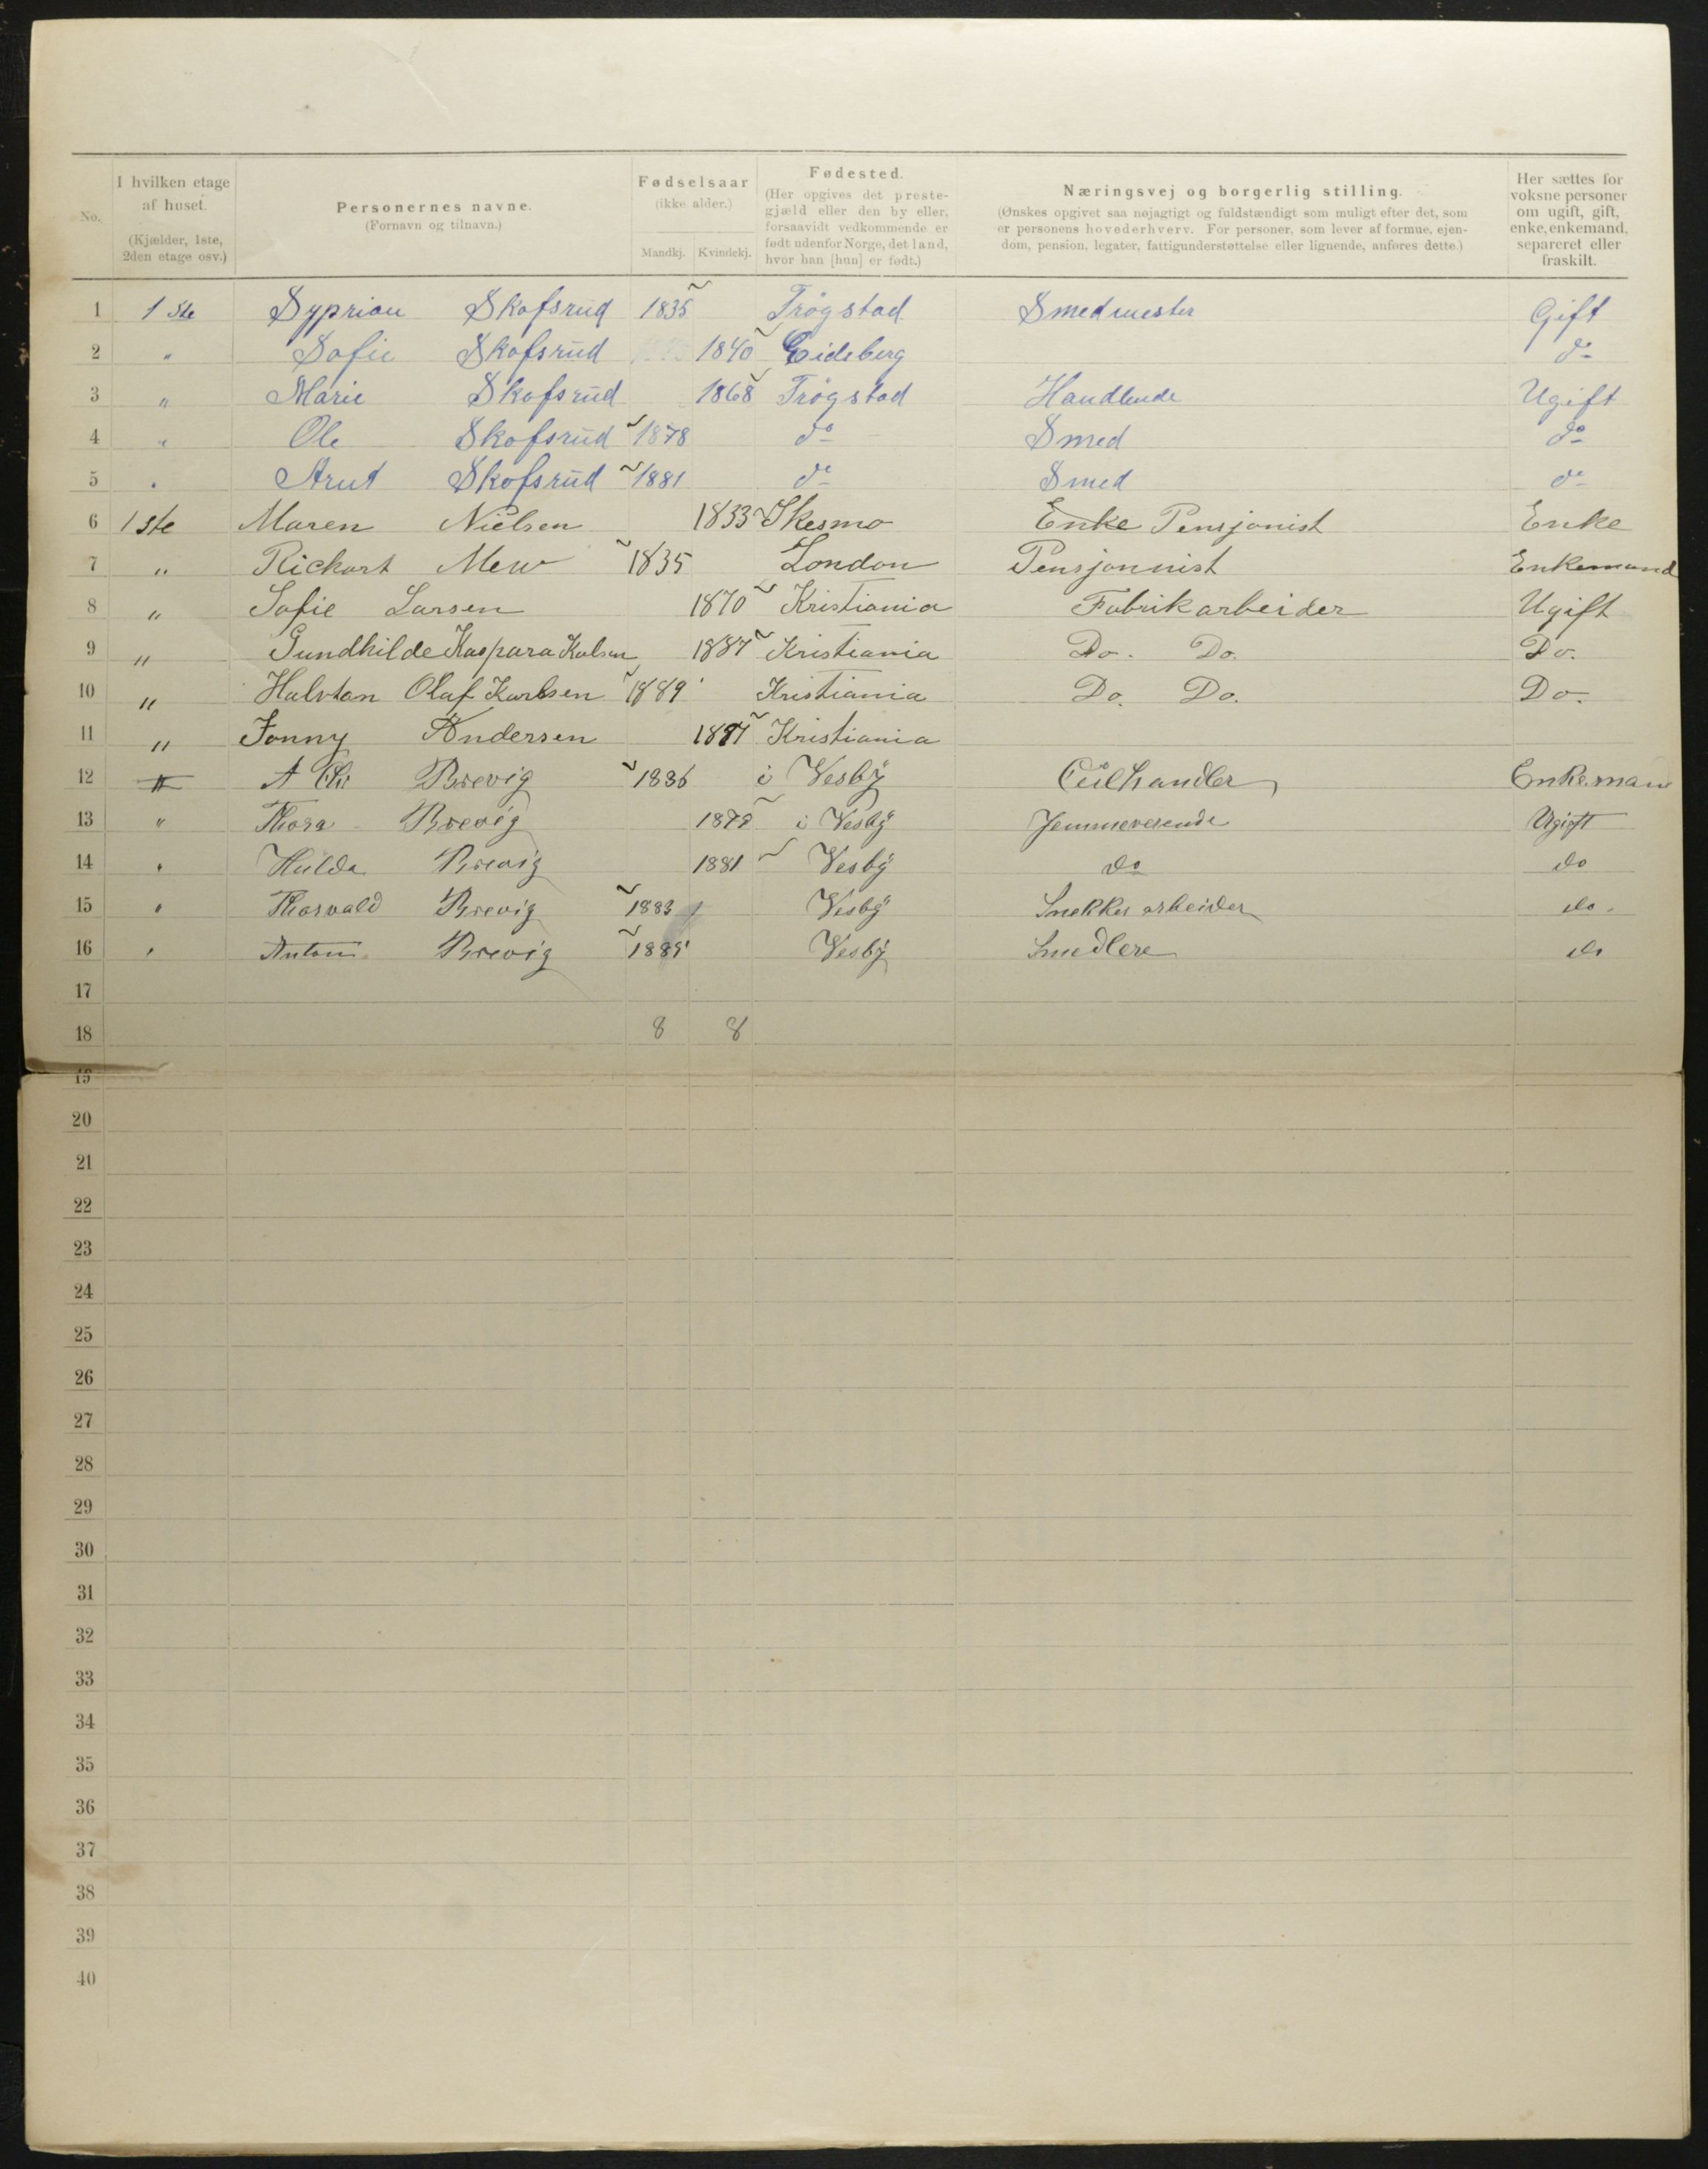 No.
I hvilken etage af huset.
(Kjælder, 1ste, 2den etage osv.)
Personernes navne.
(Fornavn og tilnavn.)
Fødselsaar
(ikke alder.)
Mandkj. Kvindekj.
Fødested.
(Her opgives det prestegjæld eller den by eller, forsaavidt vedkommende er født udenfor Norge, det land, hvor han [hun] er født.)
Næringsvej og borgerlig stilling.
(Ønskes opgivet saa nøjagtigt og fuldstændigt som muligt efter det, som er personens hovederhverv. For personer, som lever af formue, ejendom, pension, legater, fattigunderstøttelse eller lignende, anføres dette.)
Her sættes for voksne personer om ugift, gift, enke, enkemand, separeret eller fraskilt.
1 1ste Syprian Skofsrud 1835 Trøgstad Smedmester Gift
2 " Sofie Skofsrud 1840 Eideberg do
3 " Marie Skofsrud 1868 Trøgstad Handlende Ugift
4 " Ole Skofsrud 1878 do Smed do
5 " Skofsrud 1881 do Smed do
6 1ste Maren Nielsen 1833 Skesmo Enke Pensjonist Enke
7 " Richart Mew 1835 London Pensjonnist Enkemand
8 " Sofie Larsen 1870 Kristiania Fabrikarbeider Ugift
9 " Gundhilde Kaspara 1887 Kristiania Do. Do. Do.
10 " Halvtan Olaf Karlsen 1889 Kristiania Do. Do. Do.
11 " Jonny Andersen Kristiania
12 " A Chr Brevig 1836 i Vesby Enkeman
13 " Thora Brevig i Vesby Jemmeverende Ugift
14 " Hulda Brevig 1881 Vesby do do
15 " Thorvald Brevig 1883 Vesby Snekker arbeider do.
16 " Anton Brevig Vesby Smedlere do
17
18 8 8
19
20
21
22
23
24
25
26
27
28
29
30
31
32
33
34
35
36
37
38
39
40